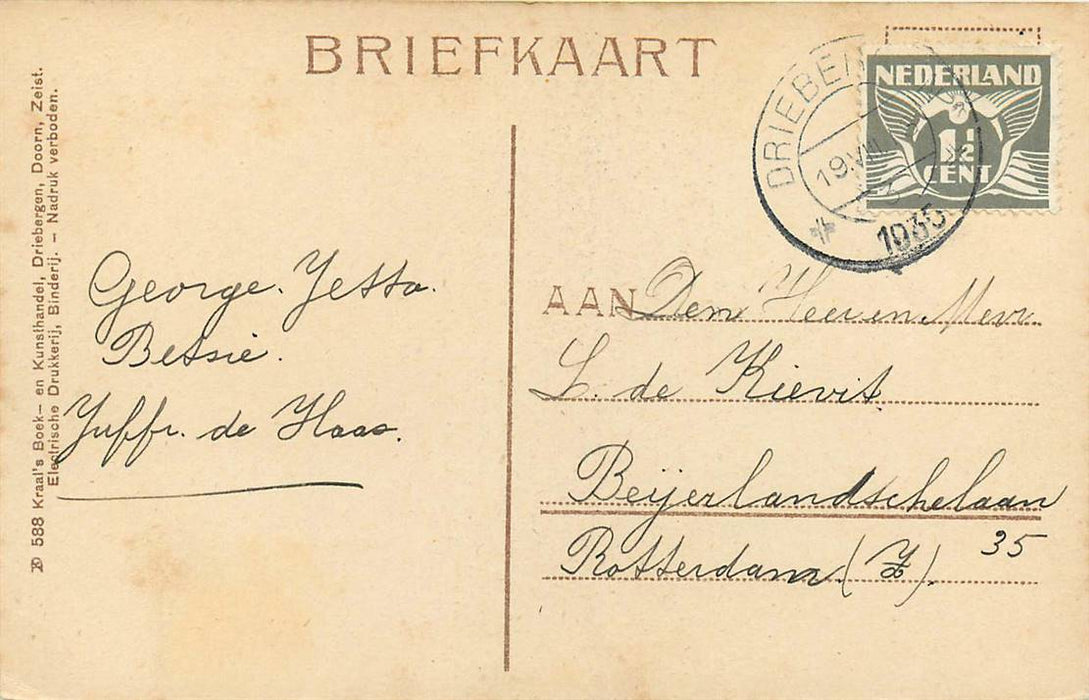 BRIEFKAART
NEDERLAND
1½
CENT
DRIEBERGEN
19.VIII
1935
588 Kraal's Boek- en Kunsthandel, Driebergen, Doorn, Zeist.
Electrische Drukkerij, Binderij. - Nadruk verboden.
George. Jetta.
Betsie.
Juffr. de Haas.
AAN Dem Heer en Mevr
L. de Kievit
Beijerlandschelaan
35
Rotterdam (Z).